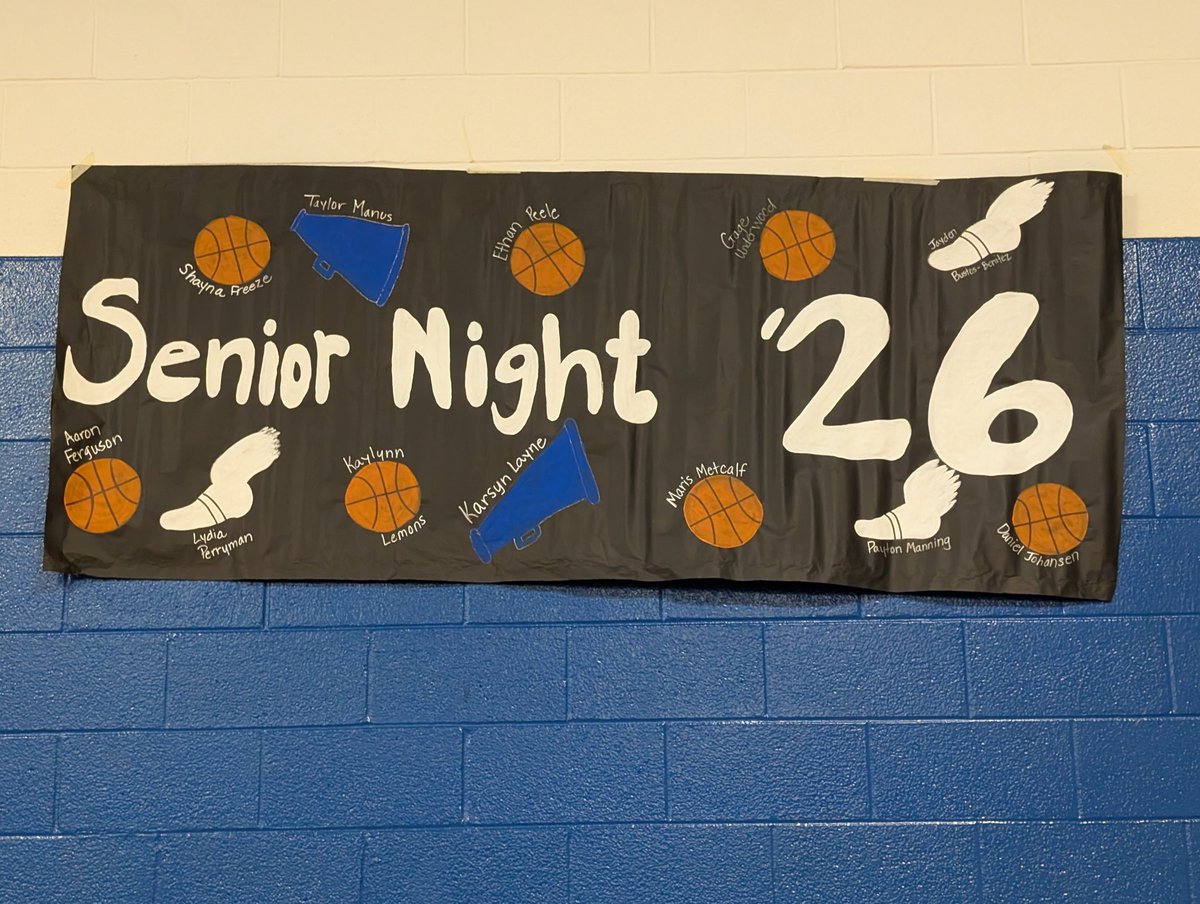 Taylor Manus
Shayna Freeze
Ethan Peele
Gage
Underwood
Jayden
Bustos-Benitez
Senior Night '26
Aaron
Ferguson
Lydia
Perryman
Kaylynn
Lemons
Karsyn Layne
Maris Metcalf
Payton Manning
Daniel Johansen